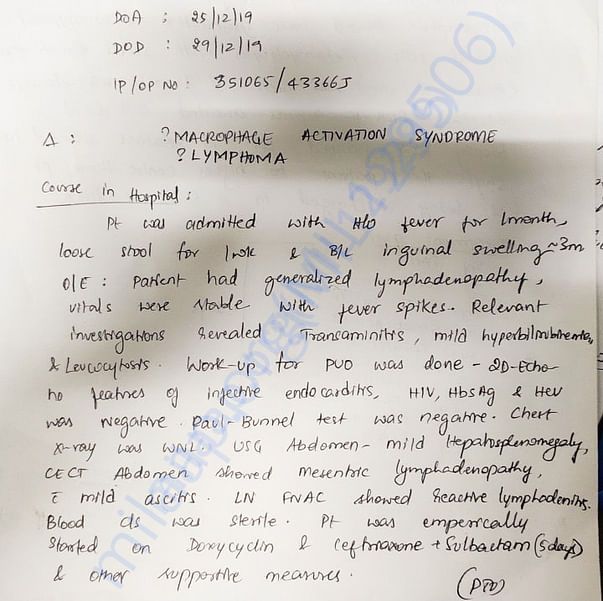 DOA : 25/12/19
DOD : 29/12/19
IP/OP NO : 351065/43366J
Δ : ? MACROPHAGE ACTIVATION SYNDROME
? LYMPHOMA
Course in Hospital :
Pt was admitted with H/o fever for 1month,
loose stool for 1wk & B/L inguinal swelling ~3m
O/E : Patient had generalized lymphadenopathy,
vitals were stable with fever spikes. Relevant
investigations revealed Transaminitis, mild hyperbilirubinemia,
& Leucocytosis. Work-up for PUO was done - 2D-Echo
no features of infective endocarditis, HIV, HbsAg & HCV
was negative. Paul-Bunnel test was negative. Chest
x-ray was WNL. USG Abdomen - mild Hepatosplenomegaly,
CECT Abdomen showed mesentric lymphadenopathy,
c̄ mild ascitis. LN FNAC showed Reactive lymphadenitis.
Blood c/s was sterile. Pt was emperically
started on Doxycyclin & Ceftriaxone + Sulbactam (5days)
& other supportive measures.
(PTO)